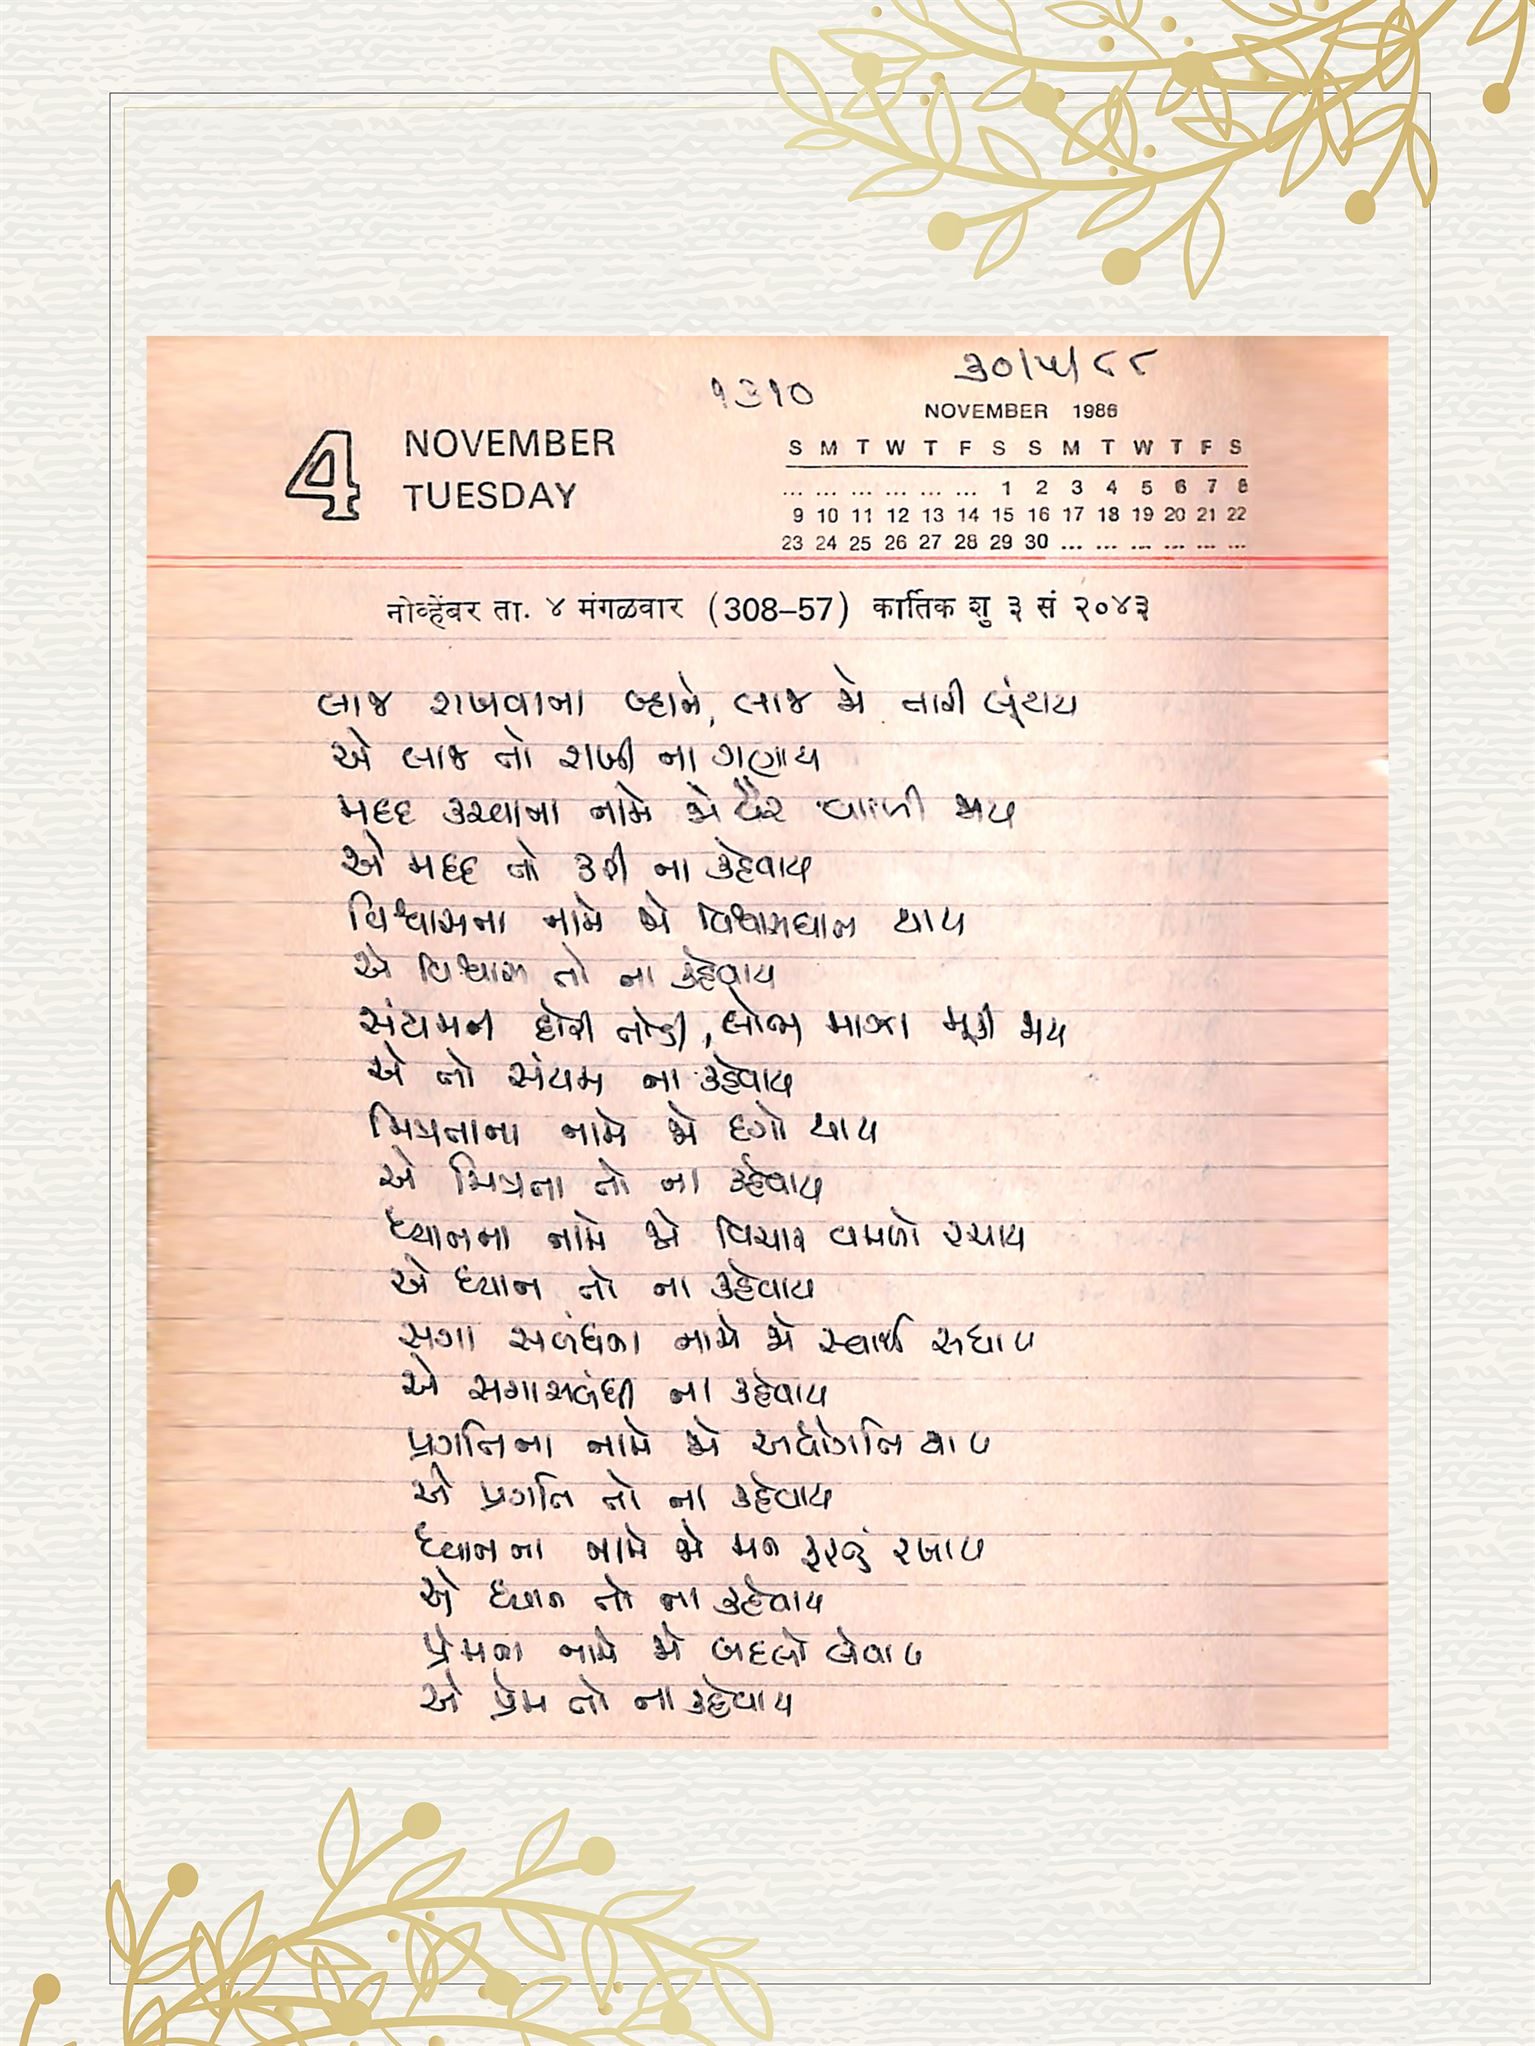 ૩૦/૫/૮૮
૧૩૧૦
4 NOVEMBER
TUESDAY
NOVEMBER 1986
S M T W T F S S M T W T F S
... ... ... ... ... ... 1 2 3 4 5 6 7 8
9 10 11 12 13 14 15 16 17 18 19 20 21 22
23 24 25 26 27 28 29 30 ... ... ... ... ... ...
नोव्हेंबर ता. ४ मंगळवार (308–57) कार्तिक शु ३ सं २०४३
લાજ રાખવાના બ્હાને, લાજ જો તારી લૂંટાય
એ લાજ તો રાખી ના ગણાય
મદદ કરવાના નામે જો વૈર વાળી જાય
એ મદદ તો કરી ના કહેવાય
વિશ્વાસના નામે જો વિશ્વાસઘાત થાય
એ વિશ્વાસ તો ના કહેવાય
સંયમની દોરી તોડી, લોભ માઝા મૂકી જાય
એ તો સંયમ ના કહેવાય
મિત્રતાના નામે જો દગો થાય
એ મિત્રતા તો ના કહેવાય
ધ્યાનના નામે જો વિચાર વમળો રચાય
એ ધ્યાન તો ના કહેવાય
સગા સબંધના નામે જો સ્વાર્થ સધાય
એ સગાસબંધી ના કહેવાય
પ્રગતિના નામે જો અધોગતિ થાય
એ પ્રગતિ તો ના કહેવાય
ધ્યાનના નામે જો મન ફરતું રખાય
એ ધ્યાન તો ના કહેવાય
પ્રેમના નામે જો બદલો લેવાય
એ પ્રેમ તો ના કહેવાય